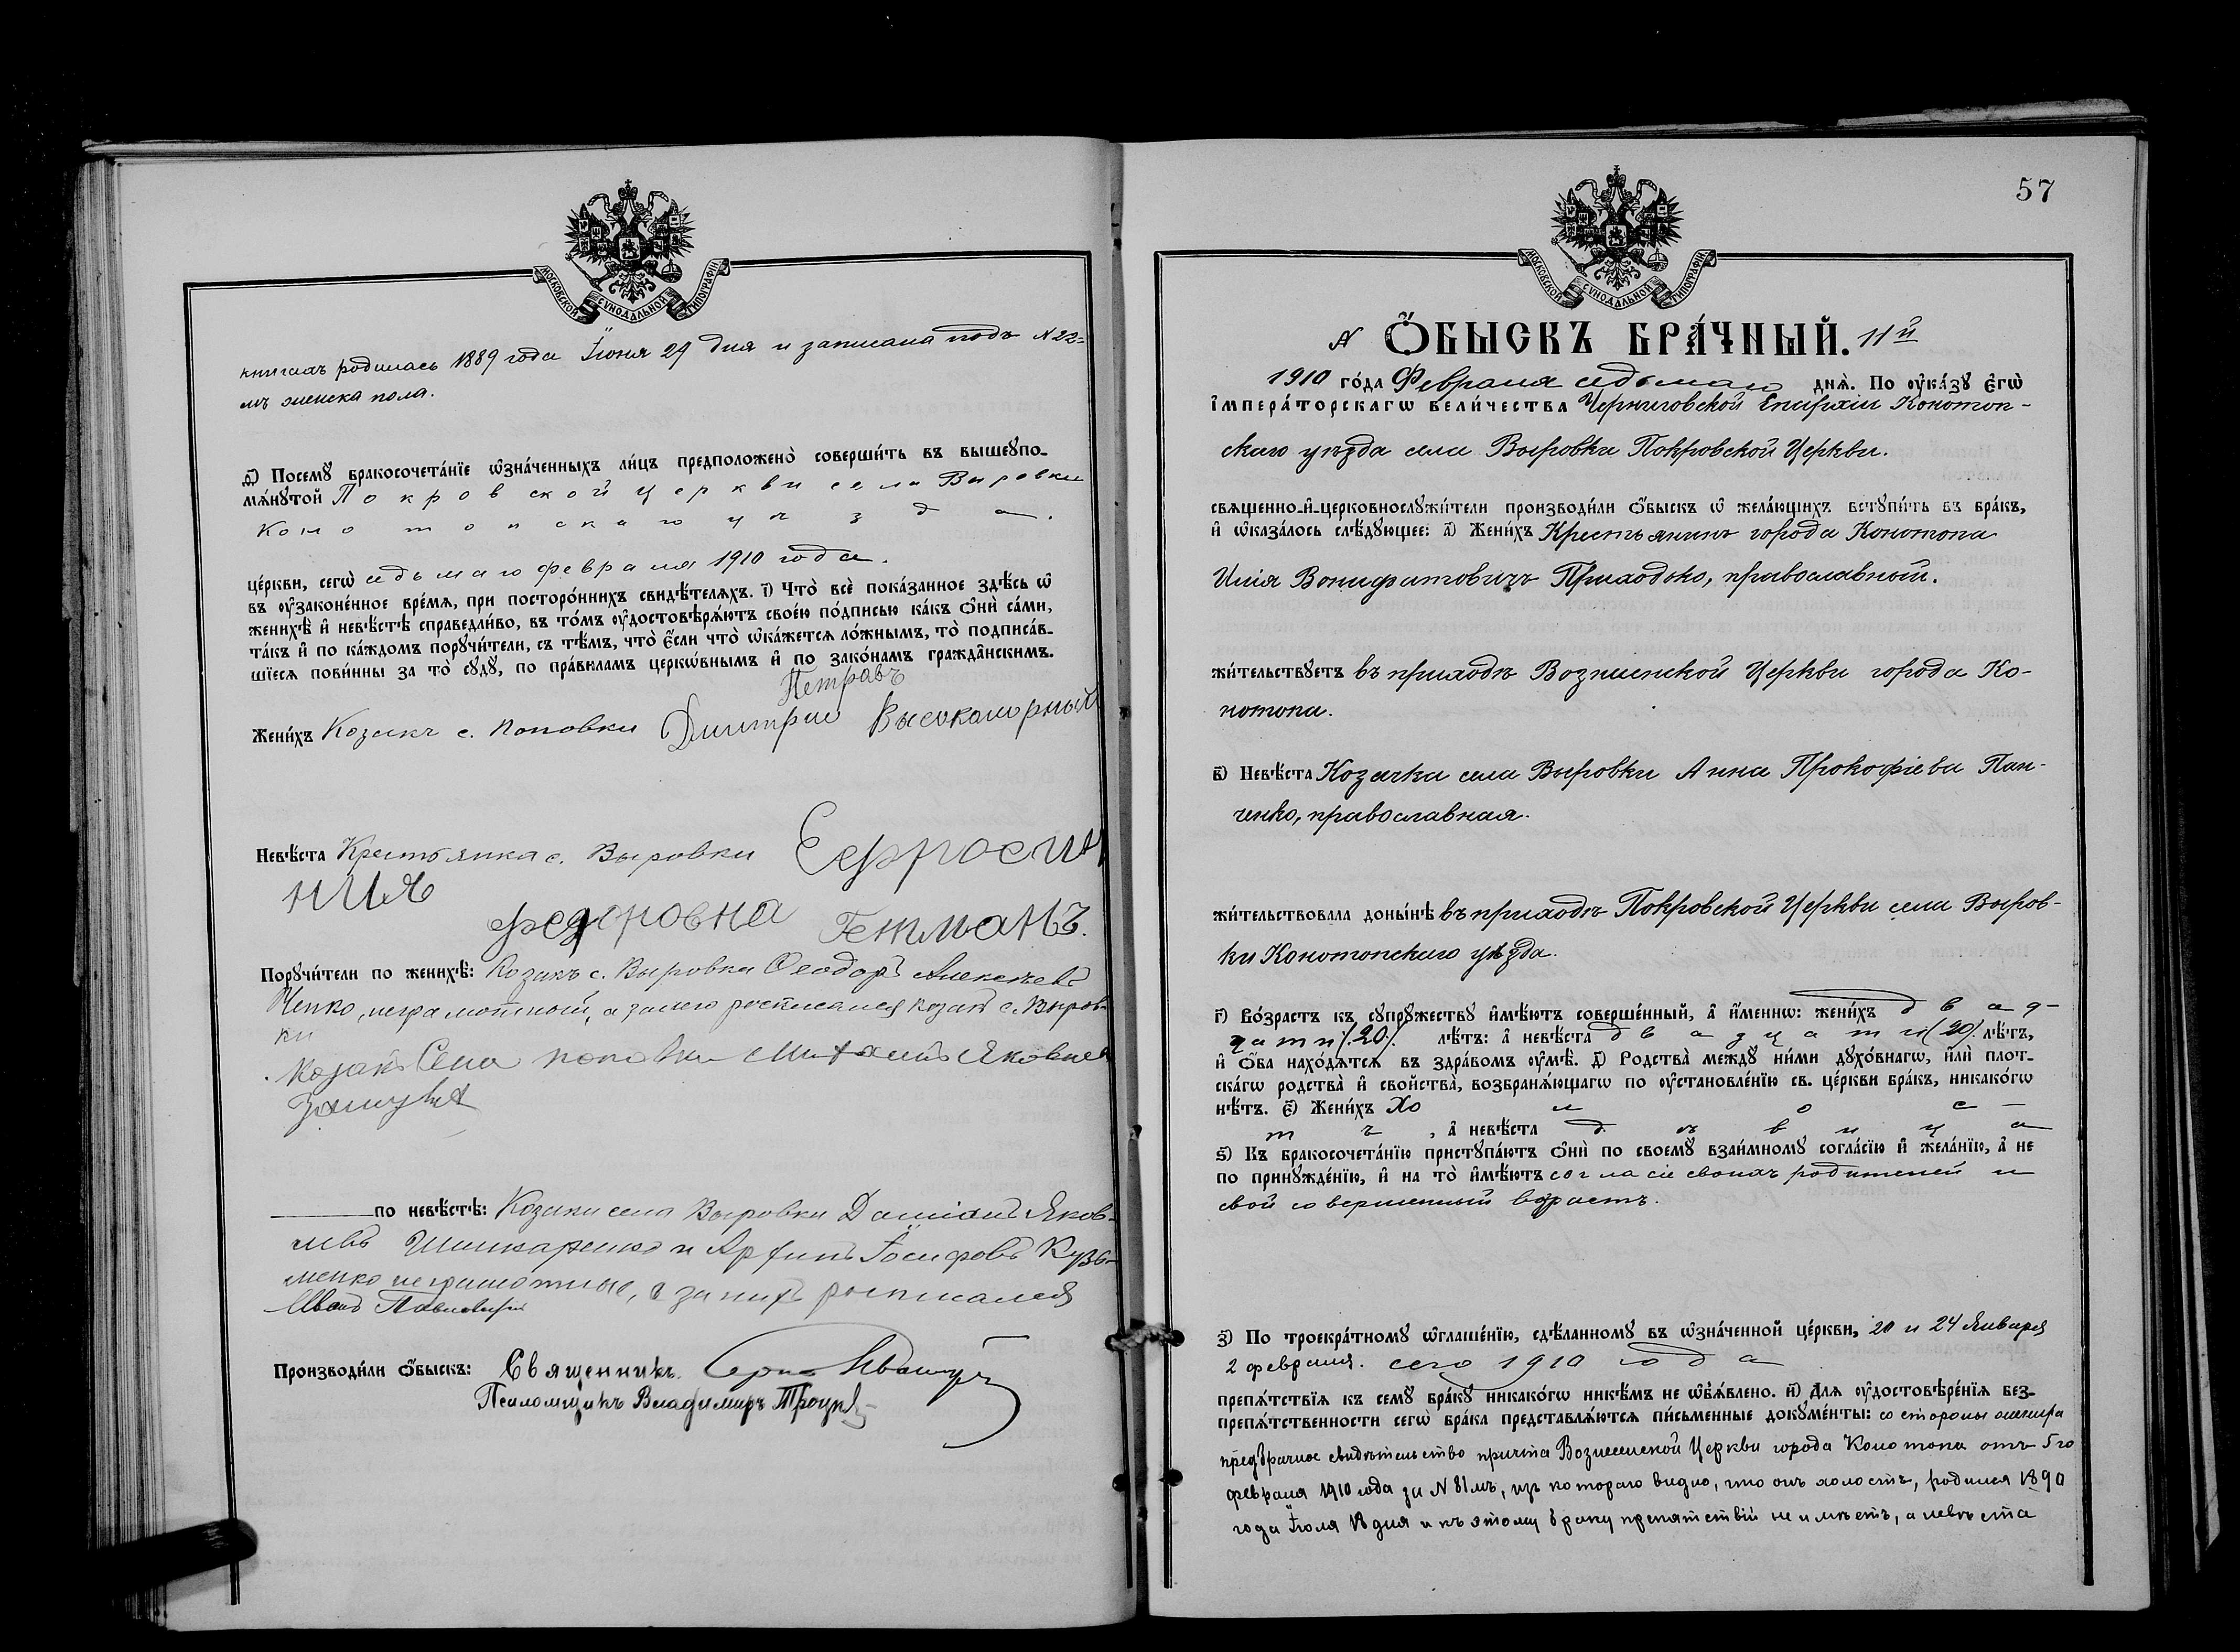 МОСКОВСКОЙ СУНОДАЛЬНОЙ ТИПОГРАФІИ
книгахъ родилась 1889 года Іюня 29 дня и записана подъ №22=
мъ женска пола.
Ѳ҃) Посемꙋ̀ бракосочета́нїе ѡ҆зна́ченныхъ ли́цъ предположенѡ̀ соверши́ть въ вышеꙋпо-
мѧ́нꙋтой Покровской церкви села Выровки
Конотопскаго уѣзда.
це́ркви, сегѡ̀ седьмаго февраля 1910 года.
въ ѹ҆законе́нное вре́мѧ, при посторо́ннихъ свидѣ́телѧхъ. і҃) Что̀ всѐ пока́занное здѣ́сь ѡ҆
женихѣ̀ и҆ невѣ́стѣ справедли́во, въ то́мъ ѹ҆достовѣрѧ́ютъ своею по́дписью ка́къ ѻ҆нѝ са́ми,
та́къ и҆ по ка́ждомъ порꙋчи́тели, съ тѣ́мъ, что̀ є҆́сли что̀ ѡ҆ка́жетсѧ ло́жнымъ, то̀ подписа́в-
шїесѧ пови́нны за то̀ сꙋдꙋ̀, по пра́виламъ церкѡ́внымъ и҆ по зако́намъ гражда̂нскимъ.
Петравъ
Жени́хъ Козакъ с. Поповки Дмитрий Высокогорный
Невѣ́ста Крестьянка с. Выровки Ефросин
ния
федоровна Гетманъ.
Порꙋчи́тели по женихѣ̀: Козакъ с. Выровки Ѳеодоръ Алексѣевъ
неграмотный, а занего росписался козакъ с. Выров-
ки
козакъ Села поповки Михаилъ Яковлев
по невѣ́стѣ: Козаки села Выровки Даміанъ Яков-
левъ Шинкаренко и Іосифовъ Кузь-
менко неграмотные, а за нихъ росписался
Иванъ
Производи́ли ѻ҆́быскъ: Священникъ
Псаломщикъ Владимиръ Троцкій
57
МОСКОВСКОЙ СУНОДАЛЬНОЙ ТИПОГРАФІИ
№ Ѻ҆́БЫСКЪ БРА́ЧНЫЙ. 11й
1910 го́да Февраля седьмаго днѧ̀. По ѹ҆ка́зꙋ Є҆гѡ̀
І҆мпера́торскагѡ Вели́чества Черниговской Епархіи Конотоп-
скаго уѣзда села Выровки Покровской Церкви.
свѧщенно-и҆-церковнослꙋжи́тели производи́ли ѻ҆́быскъ ѡ҆ жела́ющихъ встꙋпи́ть въ бра́къ,
и҆ ѡ҆каза́лось слѣ́дꙋющее: а҃) Жени́хъ Крестьянинъ города Конотопа
Илія Вонифатовичъ Приходько, православный.
жи́тельствꙋетъ въ приходѣ Вознесенской Церкви города Ко-
нотопа.
в҃) Невѣ́ста Козачка села Выровки Анна Прокофіева Пан-
ченко, православная.
жи́тельствовала доны́нѣ въ приходѣ Покровской Церкви села Выров-
ки Конотопскаго уѣзда.
г҃) Во́зрастъ къ сꙋпрꙋ́жествꙋ и҆мѣ́ютъ соверше́нный, а҆ и҆́меннѡ: жени́хъ двад-
цати /.20./ лѣ́тъ: а҆ невѣ́ста двадцати (20)/. лѣ́тъ,
и҆ ѻ҆́ба нахо́дѧтсѧ въ здра́вомъ ѹ҆мѣ̀. д҃) Родства̀ междꙋ ни́ми дꙋхо́внагѡ, и҆лѝ плот-
ска́гѡ родства̀ и҆ свойства̀, возбранѧ́ющагѡ по ѹ҆становле́нїю св. це́ркви бра́къ, никако́гѡ
нѣ́тъ. є҃) Жени́хъ Холос-
тъ, а҆ невѣ́ста дѣвица
ѕ҃) Къ бракосочета́нїю пристꙋпа́ютъ ѻ҆нѝ по своемꙋ̀ взаи́мномꙋ согла́сїю и҆ жела́нїю, а҆ не
по принꙋжде́нїю, и҆ на то̀ и҆мѣ́ютъ согласіе своихъ родителей и
свой совершенный возрастъ.
з҃) По троекра́тномꙋ ѡ҆глаше́нїю, сдѣ́ланномꙋ въ ѡ҆зна́ченной це́ркви, 20 и 24 Января
2 февраля. сего 1910 года
препѧ́тствїѧ къ семꙋ̀ бра́кꙋ никако́гѡ никѣ́мъ не ѡ҆б̾ѧ́влено. и҃) Длѧ ѹ҆достовѣре́нїѧ без-
препѧ́тственности сегѡ̀ бра́ка представлѧ́ютсѧ пи́сьменные докꙋме́нты: со стороны жениха
предбрачное свидѣтельство причта Вознесенской Церкви города Конотопа отъ 5го
февраля 1910 года за №81мъ, изъ котораго видно, что онъ холостъ, родился 1890
года Іюля 18 дня и къ этому браку препятствій не имѣетъ, а невѣста